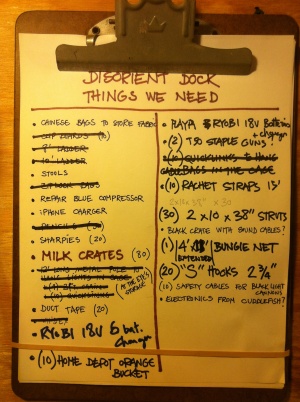 DISORIENT DOCK
THINGS WE NEED
• CHINESE BAGS TO STORE FABRIC
• CLIP BOARDS
• 8' LADDER
• 10' LADDER
• STOOLS
• BAGS
• REPAIR BLUE COMPRESSOR
• iPHONE CHARGER
• PENCILS
• SHARPIES (20)
• MILK CRATES (80)
• 12' LONG METAL POLE TO
HANG LIGHTS
(AT THE
STORAGE)
• DUCT TAPE (20)
• RYOBI 18V 6 bat.
Charger
• (10) HOME DEPOT ORANGE
BUCKET
• PLAYA RYOBI 18V Batteries
+ charger
• (2) T50 STAPLE GUNS?
• (10) QUICKLINKS TO HANG
BAGS IN THE CAGE
• (10) RACHET STRAPS 13'
2x10x38" x 30
(30) 2 x 10 x 38" STRUTS
• BLACK CRATE WITH SOUND CABLES?
(1) 14' x 18' BUNGIE NET
EXTENDED
(20) "S" HOOKS 2 3/4"
(10) SAFETY CABLES FOR BLACKLIGHT
CANNONS
• ELECTRONICS FROM CUDDLEFISH?